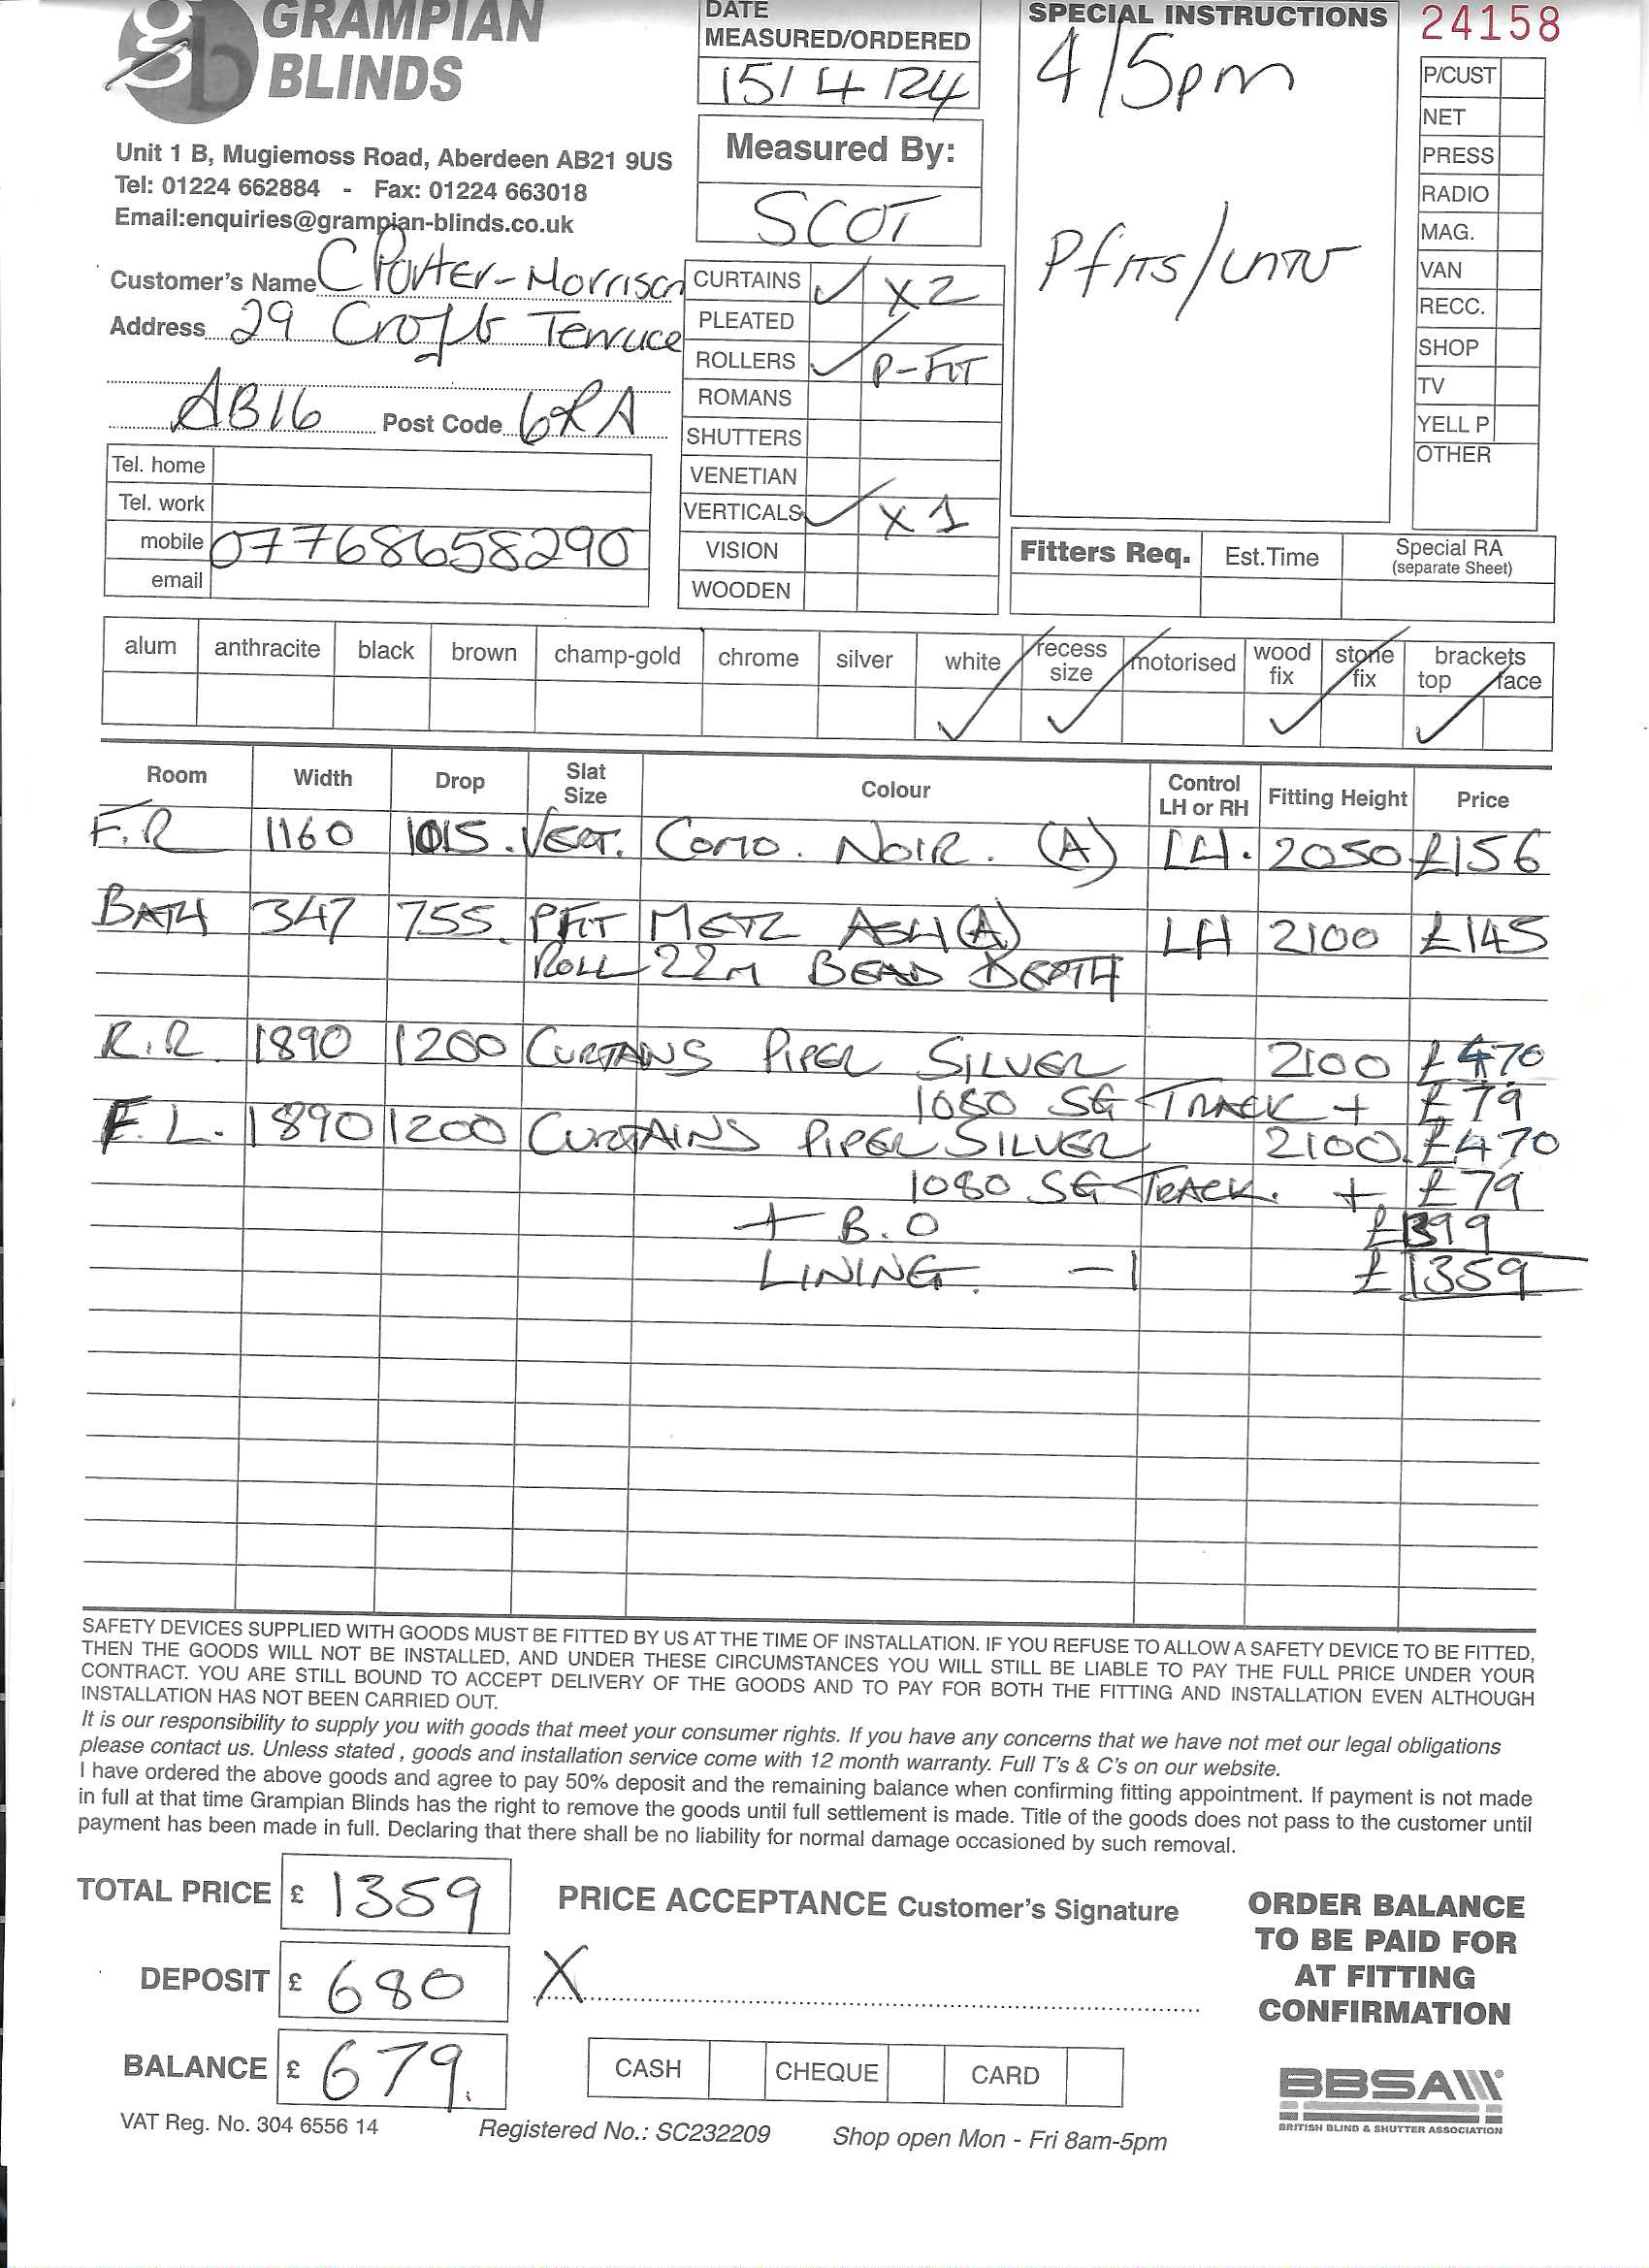 GRAMPIAN
BLINDS
Unit 1 B, Mugiemoss Road, Aberdeen AB21 9US
Tel: 01224 662884 - Fax: 01224 663018
Email:enquiries@grampian-blinds.co.uk
DATE
MEASURED/ORDERED
15/4/24
Measured By:
SCOT
SPECIAL INSTRUCTIONS
4/5pm
24158
P/CUST
NET
PRESS
RADIO
MAG.
VAN
RECC.
SHOP
TV
YELL P
OTHER
Customer's Name C Porter-Morrison
Address 29 Croft Terrace
AB16 Post Code 6RA
Tel. home
Tel. work
mobile 07768658290
email
CURTAINS ✓ X2
PLEATED
ROLLERS ✓ P-FIT
ROMANS
SHUTTERS
VENETIAN
VERTICALS ✓ X1
VISION
WOODEN
Fitters Req. Est.Time Special RA
(separate Sheet)
alum anthracite black brown champ-gold chrome silver white recess size motorised wood fix stone fix brackets top face
Room Width Drop Slat Size Colour Control LH or RH Fitting Height Price
F.R 1160 1015. VERT. COMO. NOIR. (A) LH. 2050 £156
BATH 347 755. PFIT METZ ASH (A) LH 2100 £145
ROLL 22M BEAD DEPTH
R.R. 1890 1200 CURTAINS PIPER SILVER 2100 £470
1080 SG TRACK + £79
F.L. 1890 1200 CURTAINS PIPER SILVER 2100. £470
1080 SG TRACK. + £79
+ B.O £1399
LINING. -1 £1359
SAFETY DEVICES SUPPLIED WITH GOODS MUST BE FITTED BY US AT THE TIME OF INSTALLATION. IF YOU REFUSE TO ALLOW A SAFETY DEVICE TO BE FITTED,
THEN THE GOODS WILL NOT BE INSTALLED, AND UNDER THESE CIRCUMSTANCES YOU WILL STILL BE LIABLE TO PAY THE FULL PRICE UNDER YOUR
CONTRACT. YOU ARE STILL BOUND TO ACCEPT DELIVERY OF THE GOODS AND TO PAY FOR BOTH THE FITTING AND INSTALLATION EVEN ALTHOUGH
INSTALLATION HAS NOT BEEN CARRIED OUT.
It is our responsibility to supply you with goods that meet your consumer rights. If you have any concerns that we have not met our legal obligations
please contact us. Unless stated , goods and installation service come with 12 month warranty. Full T's & C's on our website.
I have ordered the above goods and agree to pay 50% deposit and the remaining balance when confirming fitting appointment. If payment is not made
in full at that time Grampian Blinds has the right to remove the goods until full settlement is made. Title of the goods does not pass to the customer until
payment has been made in full. Declaring that there shall be no liability for normal damage occasioned by such removal.
TOTAL PRICE £ 1359
PRICE ACCEPTANCE Customer's Signature
DEPOSIT £ 680
X
BALANCE £ 679.
CASH CHEQUE CARD
ORDER BALANCE
TO BE PAID FOR
AT FITTING
CONFIRMATION
BBSA
BRITISH BLIND & SHUTTER ASSOCIATION
VAT Reg. No. 304 6556 14
Registered No.: SC232209
Shop open Mon - Fri 8am-5pm